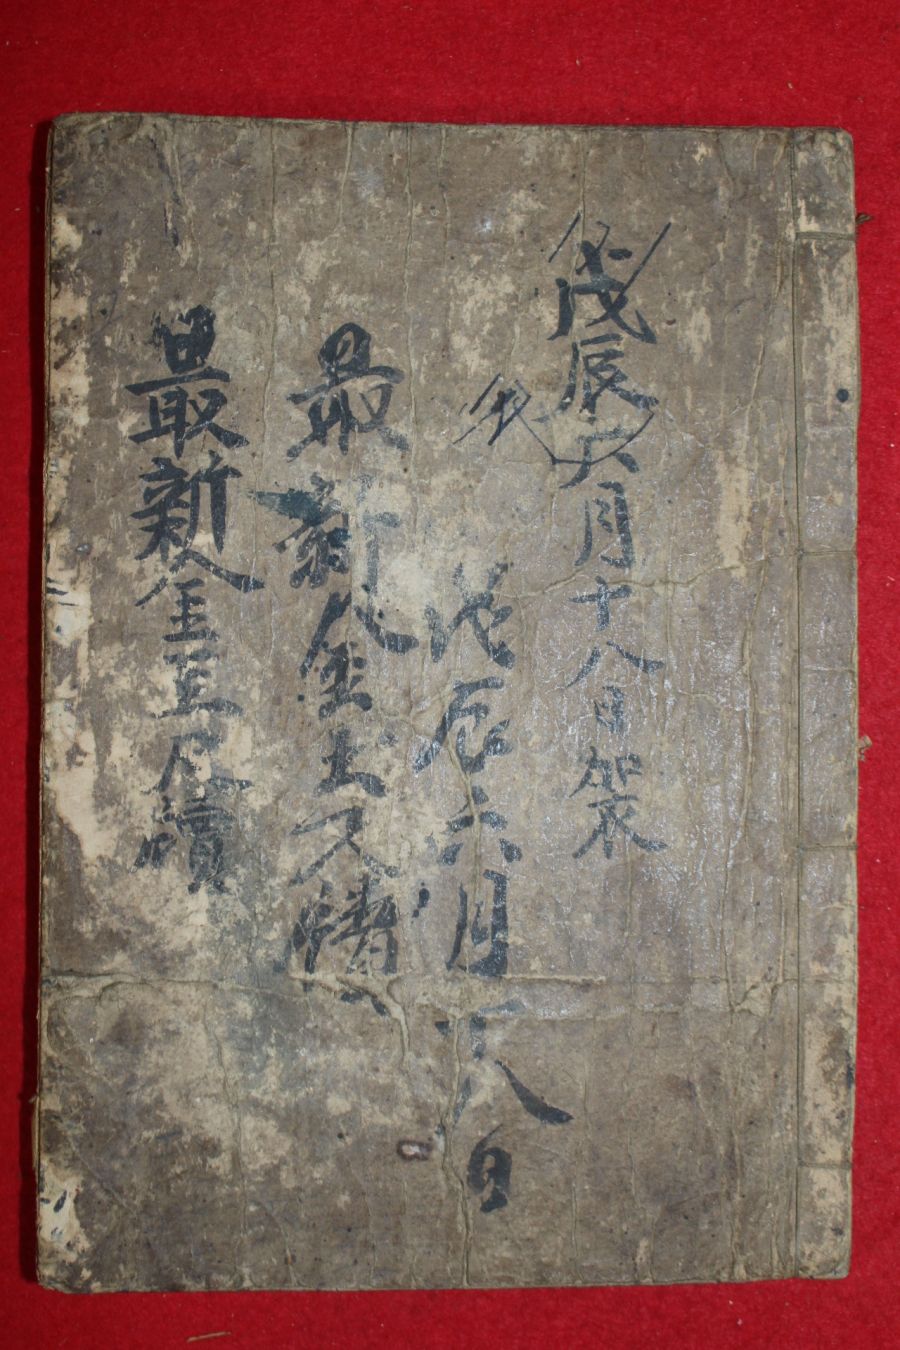 戊辰六月十八日袈
戊辰六月十八日
最新金玉尺牘
最新金玉尺牘